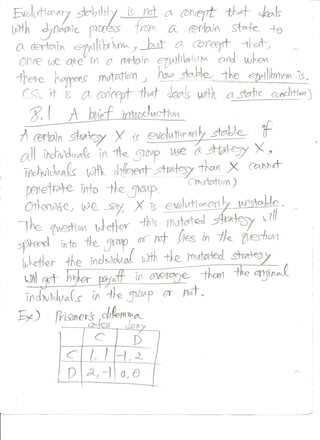 Evolutionary stability is not a concept that deals
with dynamic process from a certain state to
a certain equilibrium, but a concept that,
once we are in a certain equilibrium and when
there happens mutation, how stable the equilibrium is.
(So, it is a concept that deals with a static condition)
8.1 A brief introduction
A certain strategy X is evolutionarily stable if
all individuals in the group use a strategy X,
individuals with different strategy than X cannot
(mutation)
penetrate into the group.
Otherwise, we say, X is evolutionarily unstable.
The question whether this mutated strategy will
spread into the group or not lies in the question
whether the individual with the mutated strategy
will get higher payoff in average than the original
individuals in the group or not.
Ex) Prisoner's dilemma
deny
C D
C 1, 1 -1, 2
D 2, -1 0, 0